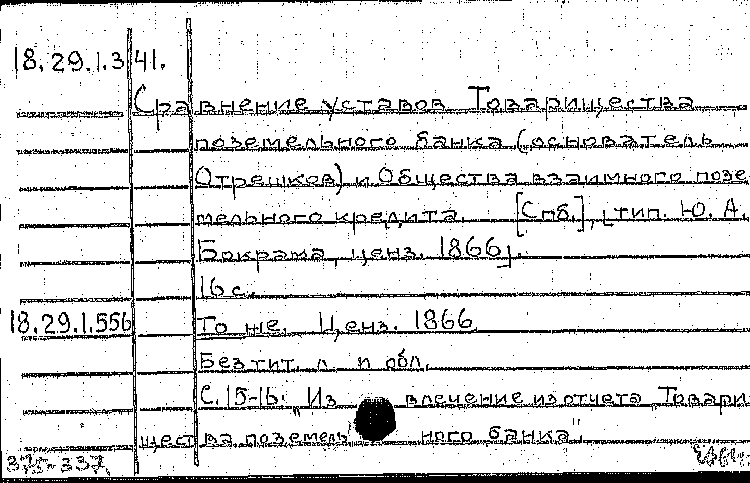 18.29.1.341.
Сравнение уставов Товарищества
поземельного банка (основатель
Отрешков) и Общества взаимного позе
мельного кредита. [Спб.], [тип. Ю. А.
Бокрама, ценз. 1866].
16 с.
18.29.1.556 То же. Ценз. 1866
Без тит. л. и обл.
С. 15-16: "Извлечение из отчета Товари
щества поземельного банка".